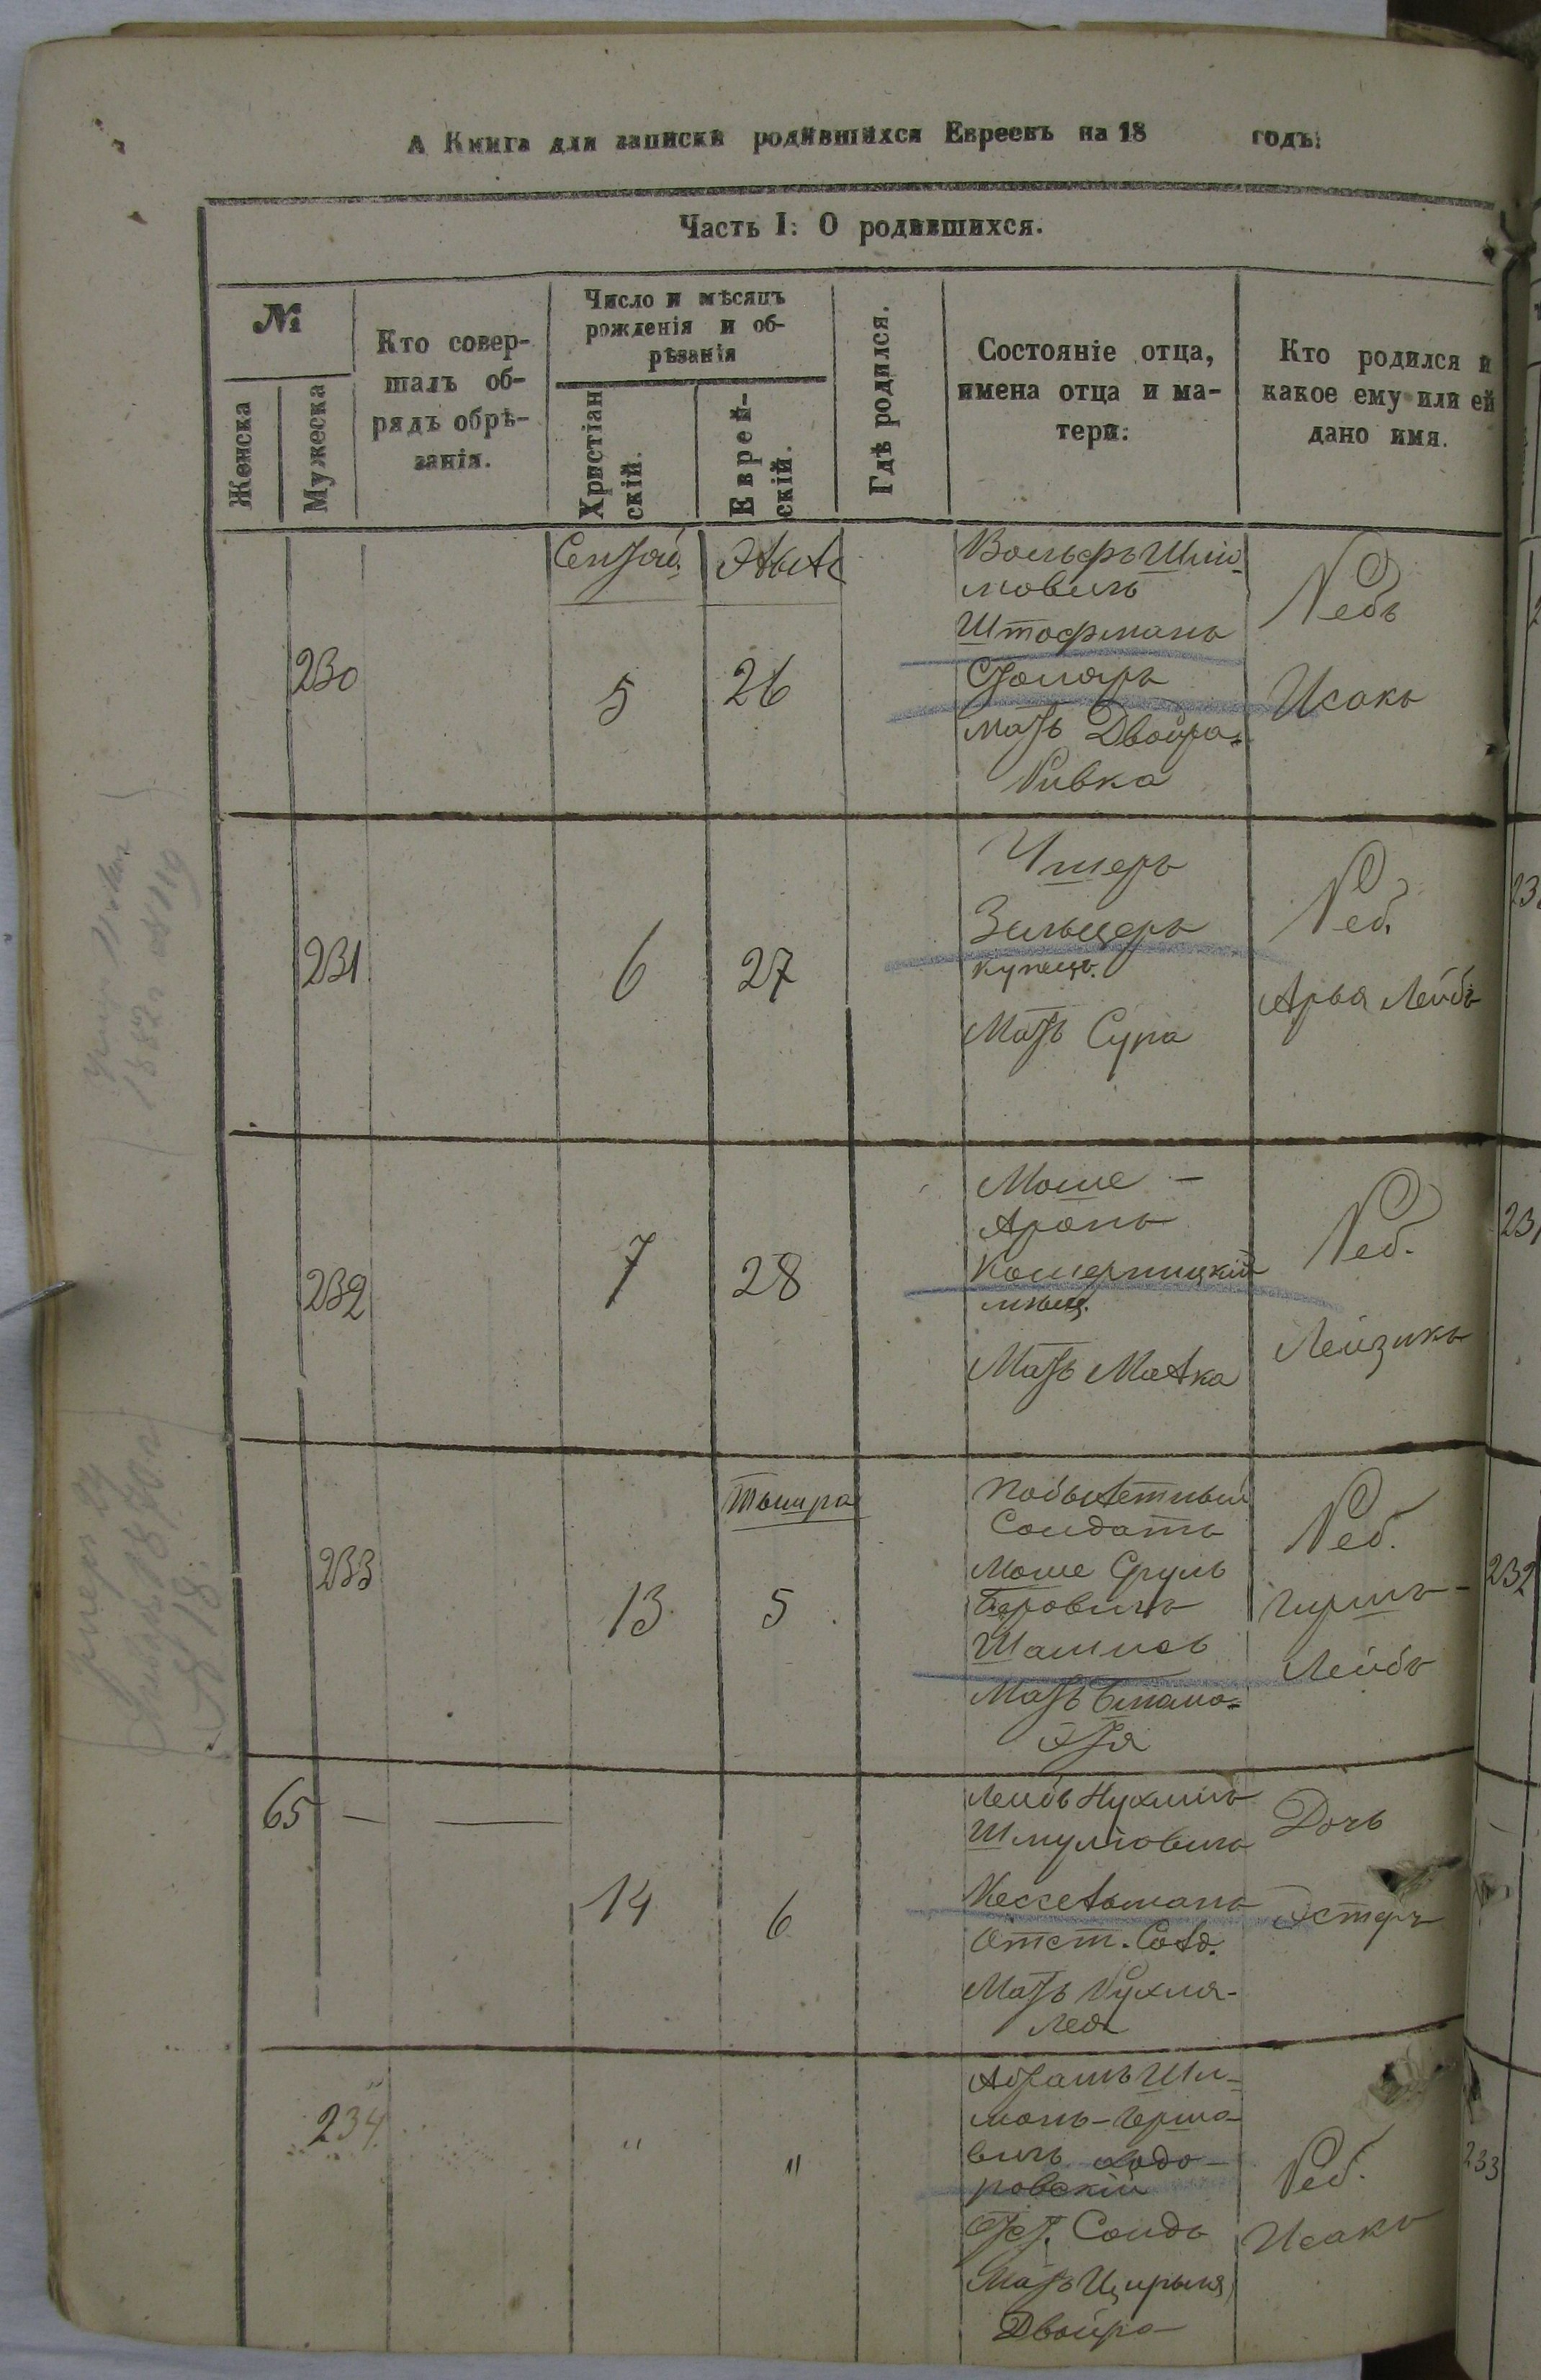 А Книга для записки родившихся Евреевъ на 18 годъ:
Часть I: О родившихся.
№
Женска
Мужеска
Кто совер-
шалъ об-
рядъ обрѣ-
занія.
Число и мѣсяцъ
рожденія и об-
рѣзанія
Христіан
скій.
Еврей-
скій.
Гдѣ родился.
Состояніе отца,
имена отца и ма-
тери:
Кто родился и
какое ему или ей
дано имя.
230
5
26
Вольфъ Шлio-
мовичъ
Штофманъ
Столяръ
мать Двойра-
Ривка
Ребъ
Исакъ
231
6
27
Ушеръ
Зильцеръ
купецъ.
Мать Сура
Реб.
Арья Лейбъ
232
7
28
Моше -
Аронъ
мѣщ.
Мать Малка
Реб.
Лейзикъ
233
13
Тышра
5
Солдатъ
Моше Сруль
Беровичъ
Мать
Реб.
Гиршъ-
Лейбъ
65 - -
14
6
Лейбъ Нухимъ
Шмулiовичъ
Кессельманъ
Отст. Солд.
Мать Рухля-
Лея
Дочь
Эстеръ
234
"
"
Абрамъ Ши-
монъ-Герш-
вичъ Ходо-
ровскiй
Отст. Солдъ
Мать Цирыля
Двойра
Реб.
Исакъ
1882 г №119
Января 1870 г
№18
231
232
233